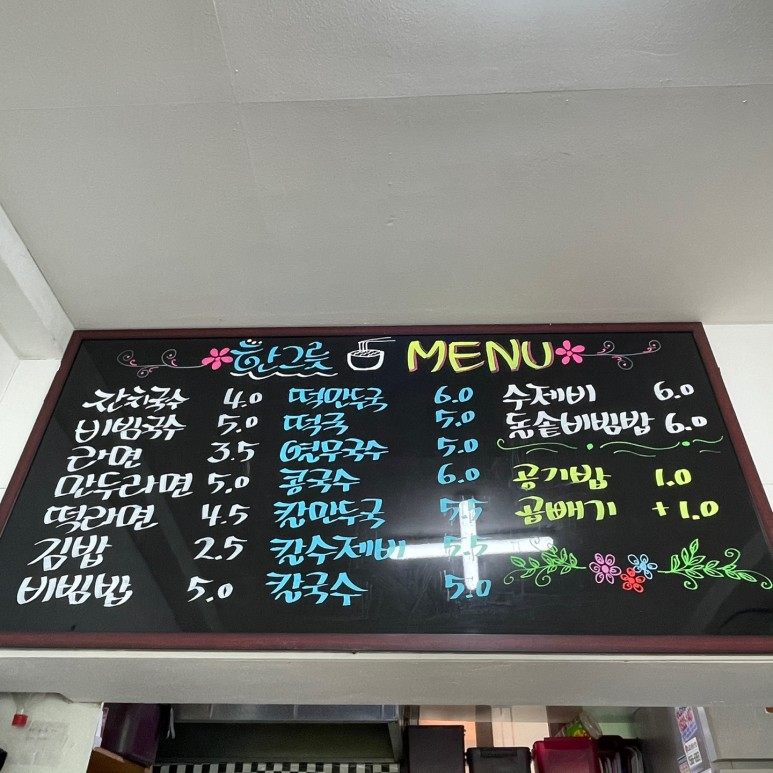 한그릇 MENU
잔치국수 4.0
비빔국수 5.0
라면 3.5
만두라면 5.0
떡라면 4.5
김밥 2.5
비빔밥 5.0
떡만두국 6.0
떡국 5.0
열무국수 5.0
콩국수 6.0
칼만두국 5.5
칼수제비 5.5
칼국수 5.0
수제비 6.0
돌솥비빔밥 6.0
공기밥 1.0
곱빼기 +1.0